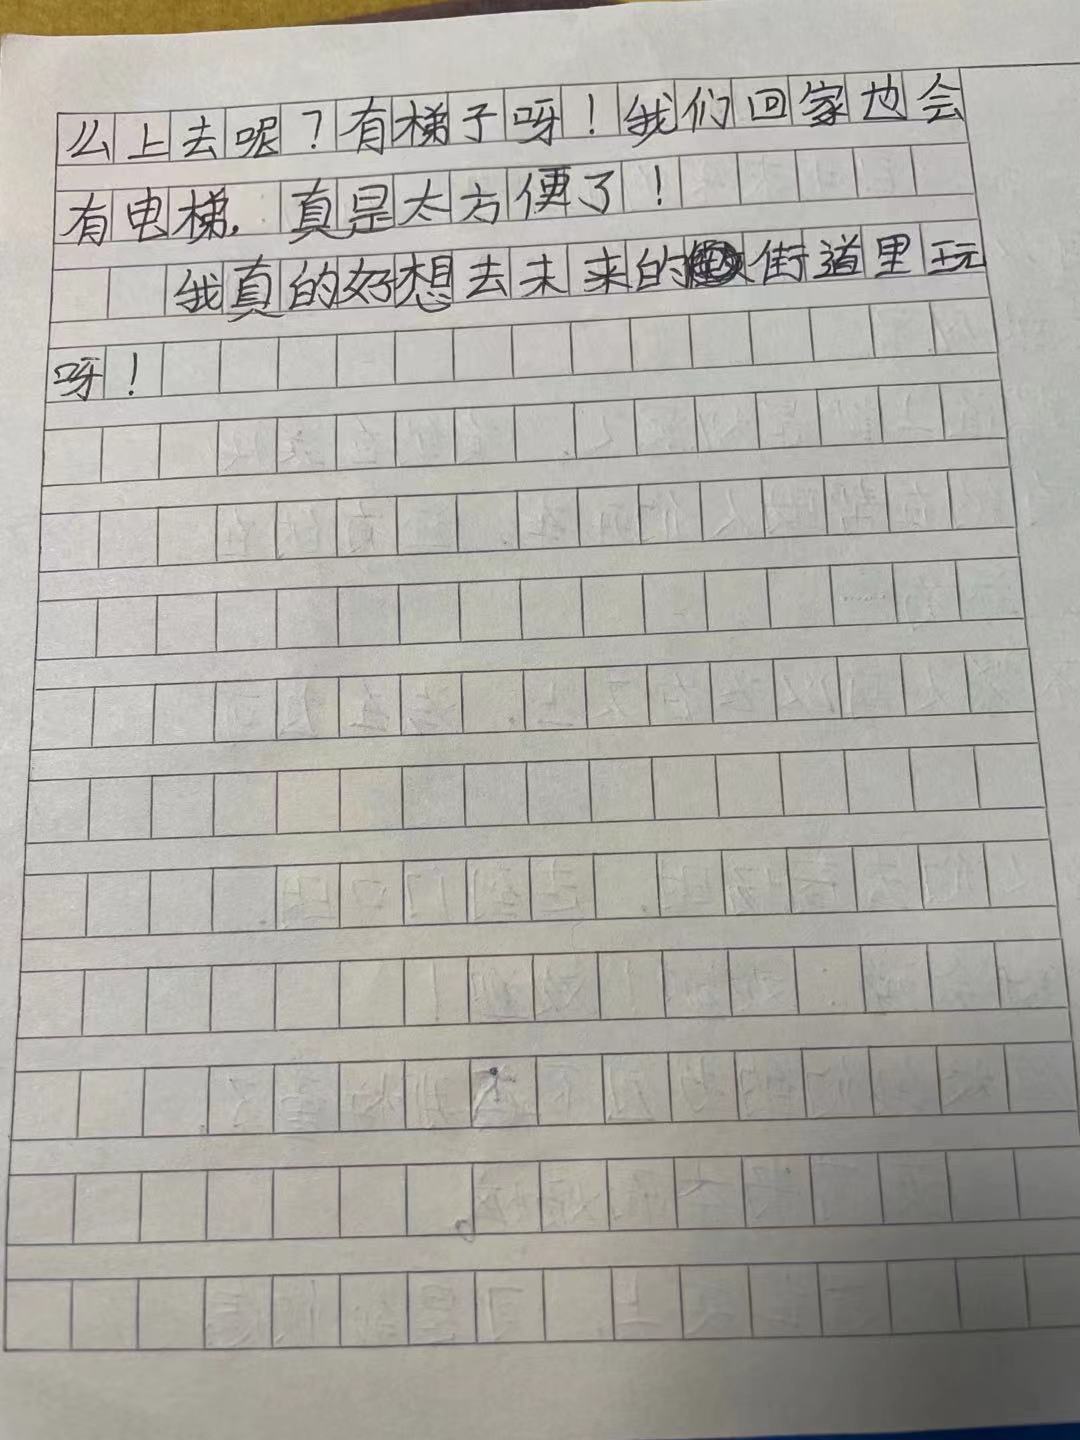 么上去呢？有梯子呀！我们回家也会
有电梯，真是太方便了！
我真的好想去未来的街道里玩
呀！